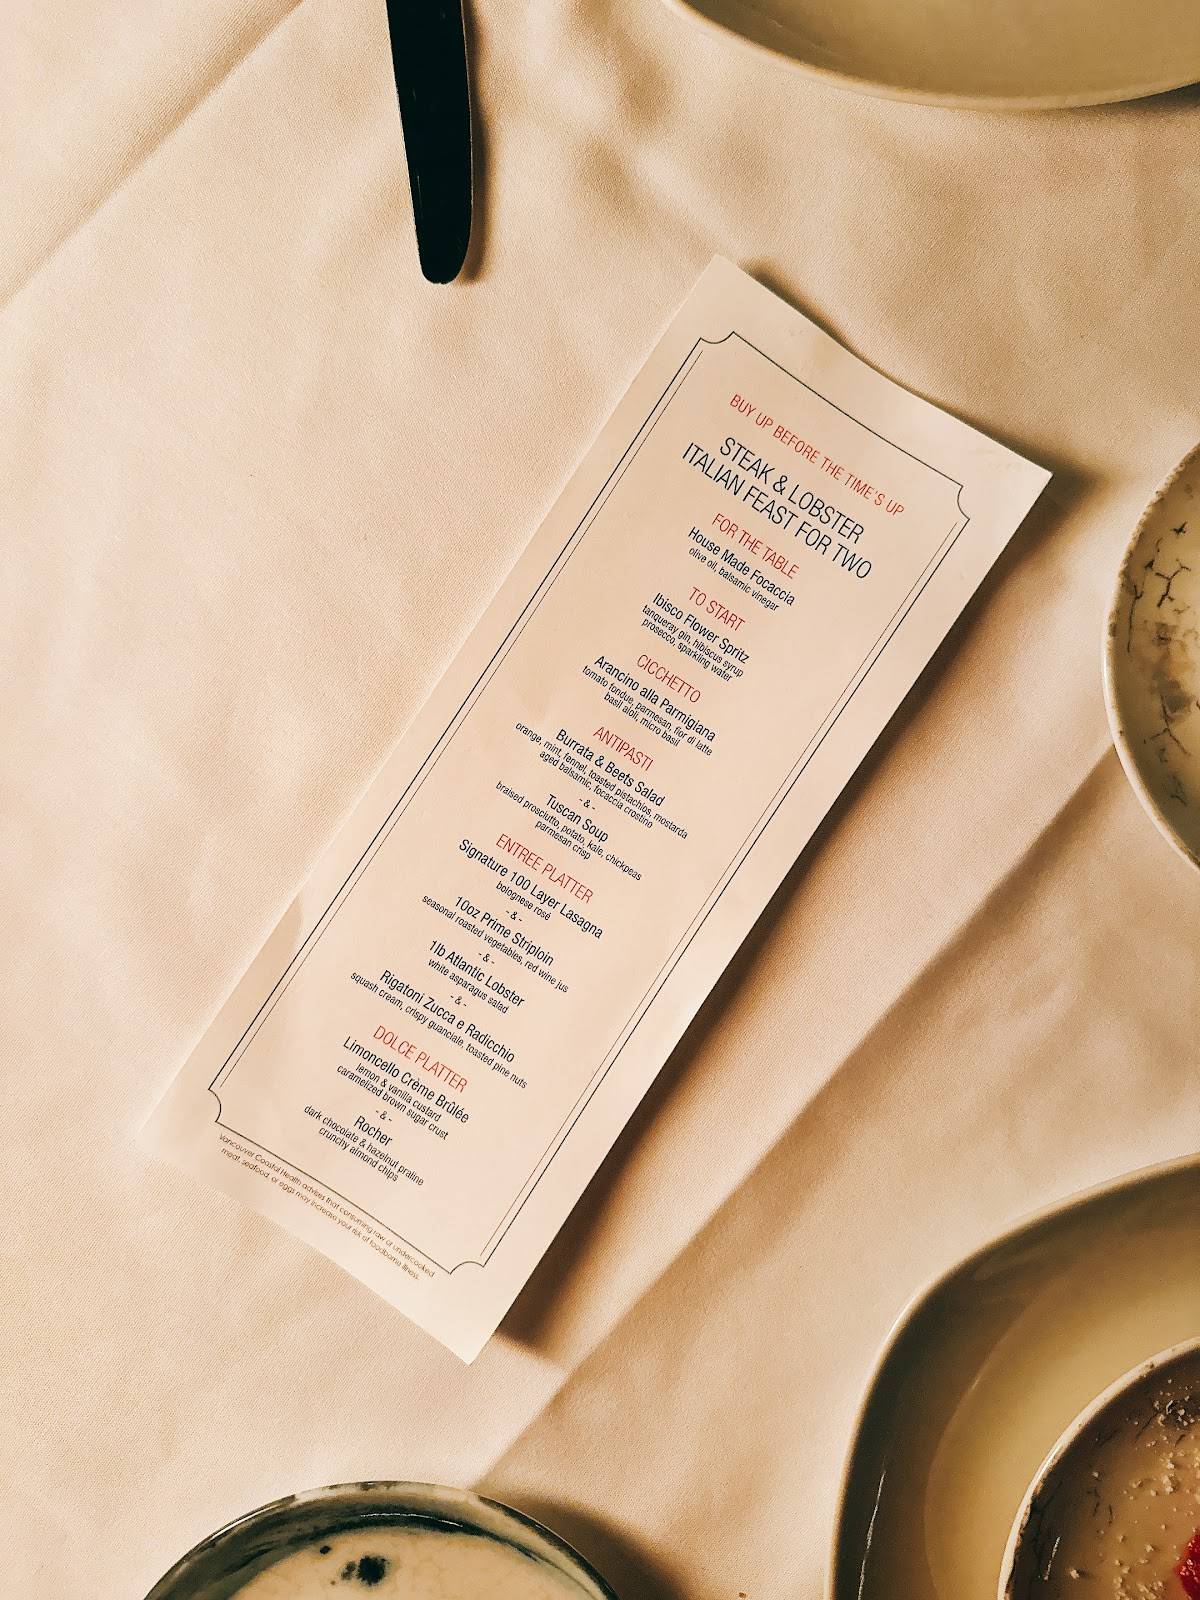 BUY UP BEFORE THE TIME'S UP
STEAK & LOBSTER
ITALIAN FEAST FOR TWO
FOR THE TABLE
House Made Focaccia
olive oil, balsamic vinegar
TO START
Ibisco Flower Spritz
tanqueray gin, hibiscus syrup
prosecco, sparkling water
CICCHETTO
Arancino alla Parmigiana
tomato fondue, parmesan, fior di latte
basil aioli, micro basil
ANTIPASTI
Burrata & Beets Salad
orange, mint, fennel, toasted pistachios, mostarda
aged balsamic, focaccia crostino
- & -
Tuscan Soup
braised prosciutto, potato, kale, chickpeas
parmesan crisp
ENTREE PLATTER
Signature 100 Layer Lasagna
bolognese rosé
- & -
10oz Prime Striploin
seasonal roasted vegetables, red wine jus
- & -
1lb Atlantic Lobster
white asparagus salad
- & -
Rigatoni Zucca e Radicchio
squash cream, crispy guanciale, toasted pine nuts
DOLCE PLATTER
Limoncello Crème Brûlée
lemon & vanilla custard
caramelized brown sugar crust
- & -
Rocher
dark chocolate & hazelnut praline
crunchy almond chips
Vancouver Coastal Health advises that consuming raw or undercooked
meat, seafood, or eggs may increase your risk of foodborne illness.